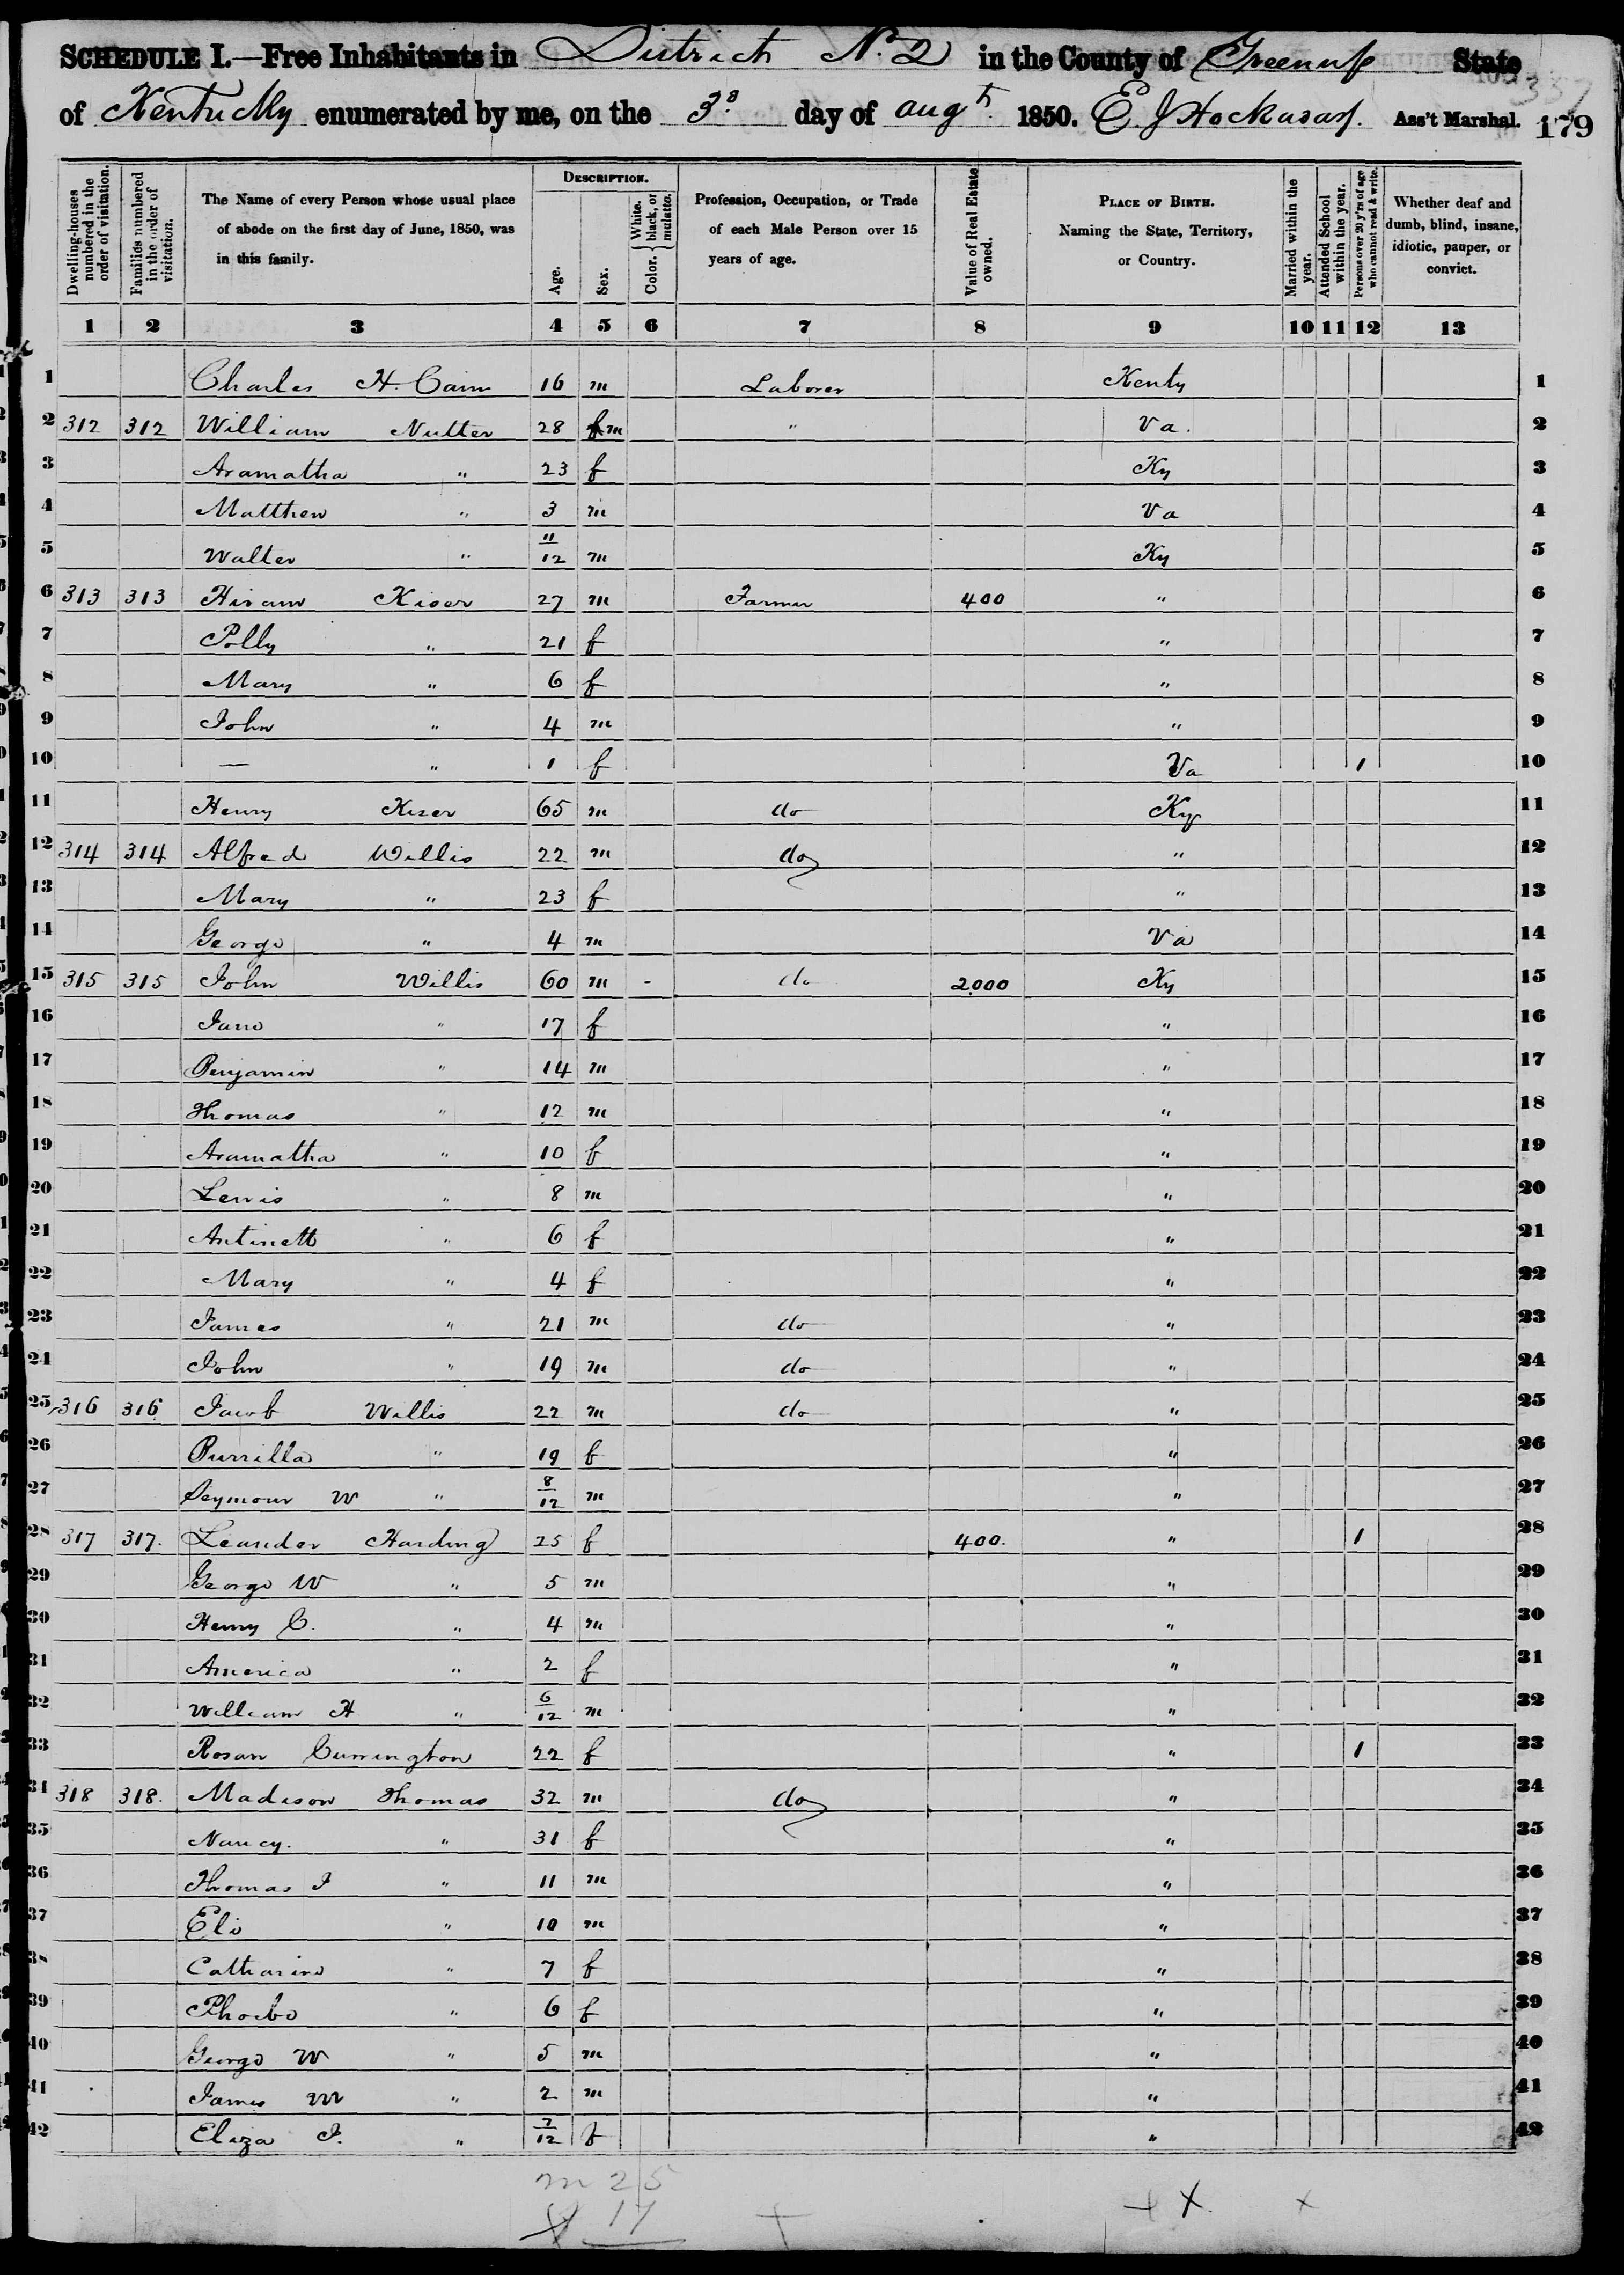 SCHEDULE I.—Free Inhabitants in District N. 2 in the County of Greenup State
of Kentucky enumerated by me, on the 3d day of augt 1850. E J Ass't Marshal. 179
337
Dwelling-houses numbered in the order of visitation.
Families numbered in the order of visitation.
The Name of every Person whose usual place of abode on the first day of June, 1850, was in this family.
DESCRIPTION.
Age.
Sex.
Color. { White, black, or mulatto.
Profession, Occupation, or Trade of each Male Person over 15 years of age.
Value of Real Estate owned.
PLACE OF BIRTH. Naming the State, Territory, or Country.
Married within the year.
Attended School within the year.
Persons over 20 y'rs of age who cannot read & write.
Whether deaf and dumb, blind, insane, idiotic, pauper, or convict.
1 2 3 4 5 6 7 8 9 10 11 12 13
1 Charles H. Cain 16 m Laborer Kenty 1
2 312 312 William Nutter 28 m " Va. 2
3 Aramatha " 23 f Ky 3
4 Matthew " 3 m Va 4
5 Walter " 11/12 m Ky 5
6 313 313 Hiram Kiser 27 m Farmer 400 " 6
7 Polly " 21 f " 7
8 Mary " 6 f " 8
9 John " 4 m " 9
10 — " 1 f Va 1 10
11 Henry Kiser 65 m do Ky 11
12 314 314 Alfred Willis 22 m do " 12
13 Mary " 23 f " 13
14 George " 4 m Va 14
15 315 315 John Willis 60 m - do 2000 Ky 15
16 Jane " 17 f " 16
17 Benjamin " 14 m " 17
18 Thomas " 12 m " 18
19 Aramatha " 10 f " 19
20 Lewis " 8 m " 20
21 Antinett " 6 f " 21
22 Mary " 4 f " 22
23 James " 21 m do " 23
24 John " 19 m do " 24
25 316 316 Jacob Willis 22 m do " 25
26 Burrilla " 19 f " 26
27 Seymour W " 8/12 m " 27
28 317 317. Leander Harding 25 f 400. " 1 28
29 George W " 5 m " 29
30 Henry C. " 4 m " 30
31 America " 2 f " 31
32 William H " 6/12 m " 32
33 Rosan Currington 22 f " 1 33
34 318 318. Madison Thomas 32 m do " 34
35 Nancy. " 31 f " 35
36 Thomas J " 11 m " 36
37 Eli " 10 m " 37
38 Catharine " 7 f " 38
39 Phoebe " 6 f " 39
40 George W " 5 m " 40
41 James M " 2 m " 41
42 Eliza J. " 7/12 f " 42
m 25
17